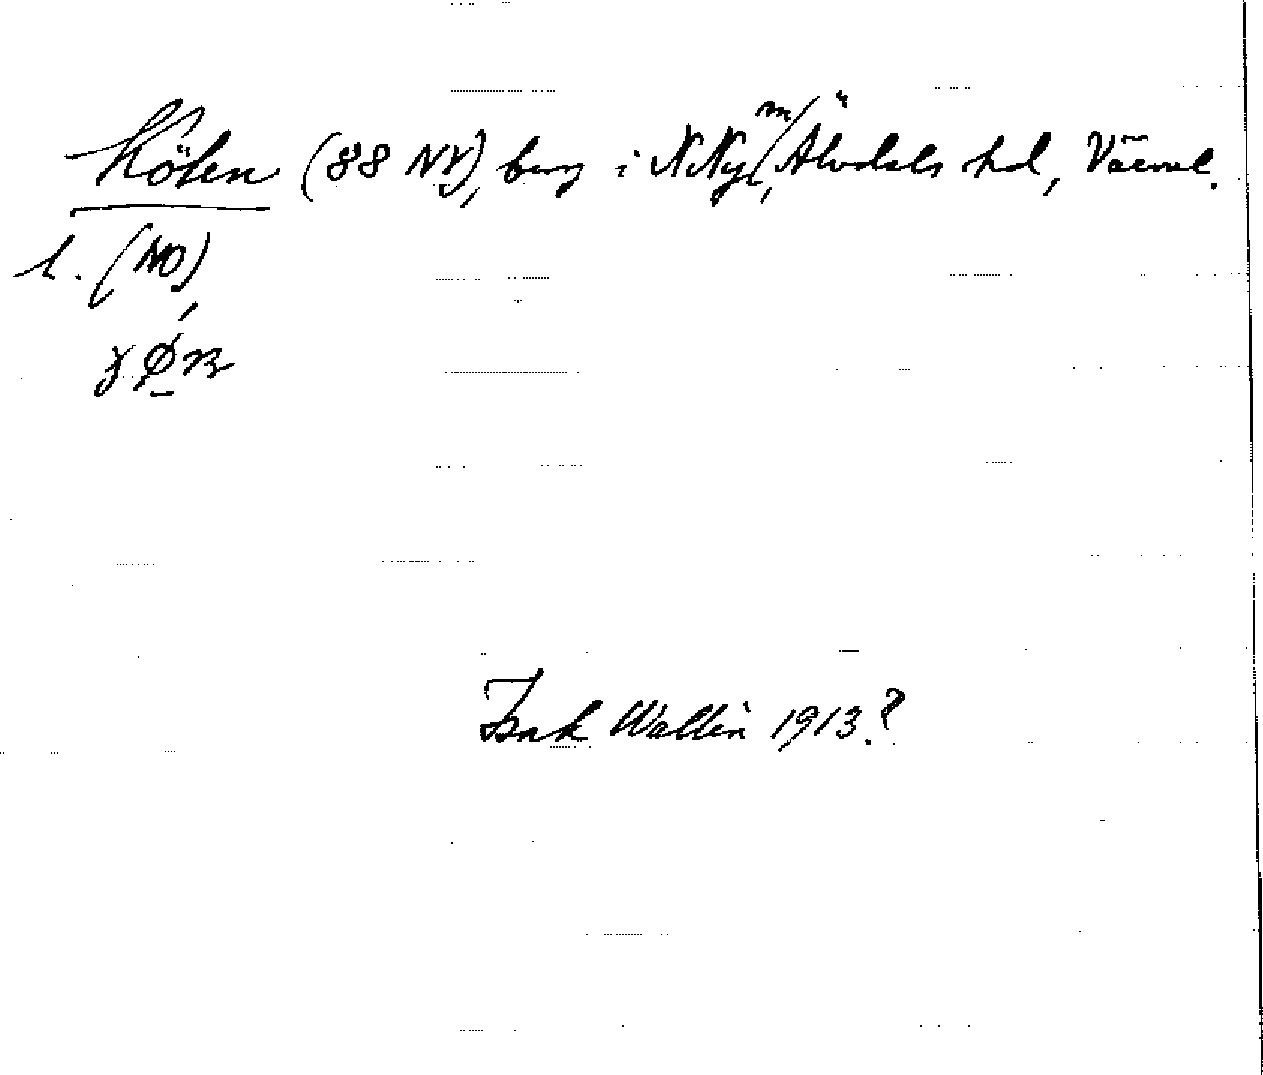 Kölen (88 NV), berg i N Ny m/ Älvdals hd, Värml.
l. (NO)
Isak Wallin 1913?